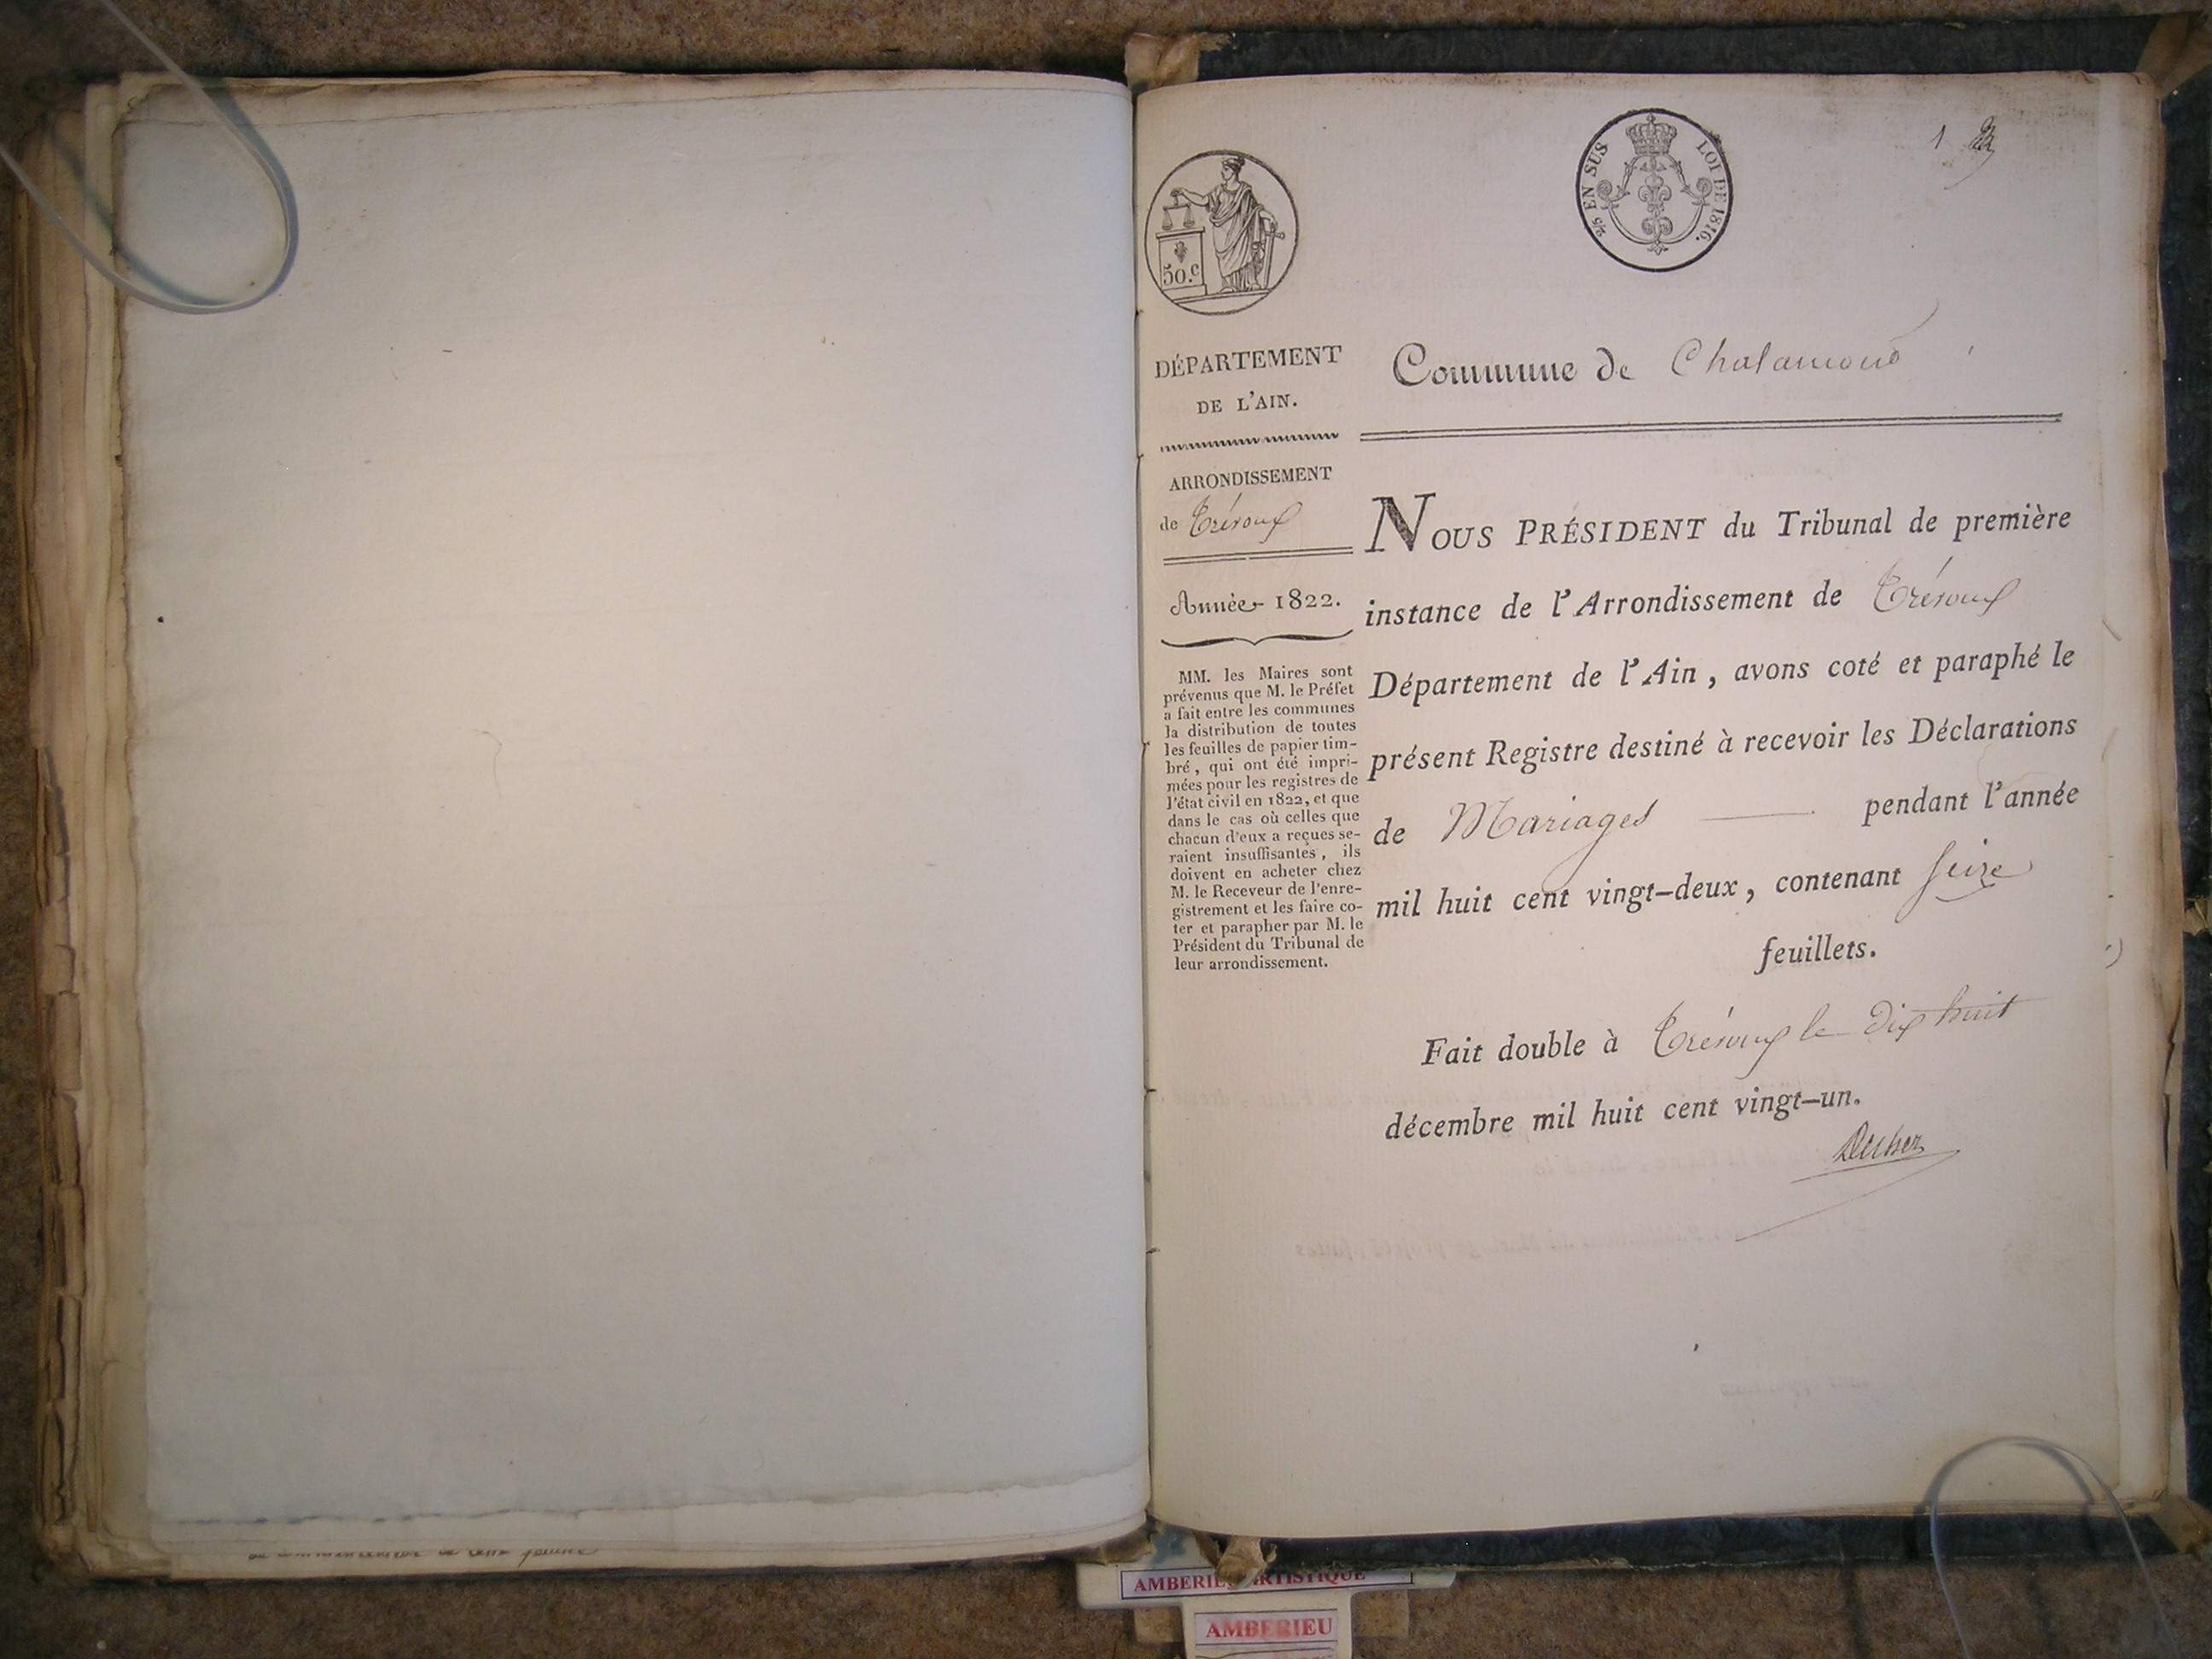 1
25 EN SUS LOI DE 1816.
50.c
DÉPARTEMENT
DE L'AIN.
ARRONDISSEMENT
de Trévoux
Année 1822.
MM. les Maires sont
prévenus que M. le Préfet
a fait entre les communes
la distribution de toutes
les feuilles de papier tim-
bré, qui ont été impri-
mées pour les registres de
l'état civil en 1822, et que
dans le cas où celles que
chacun d'eux a reçues se-
raient insuffisantes, ils
doivent en acheter chez
M. le Receveur de l'enre-
gistrement et les faire co-
ter et parapher par M. le
Président du Tribunal de
leur arrondissement.
Commune de Chalamont
NOUS PRÉSIDENT du Tribunal de première
instance de l'Arrondissement de Trévoux
Département de l'Ain, avons coté et paraphé le
présent Registre destiné à recevoir les Déclarations
de Mariages pendant l'année
mil huit cent vingt-deux, contenant seize
feuillets.
Fait double à Trévoux le dix huit
décembre mil huit cent vingt-un.
AMBERIEU ARTISTIQUE
AMBERIEU